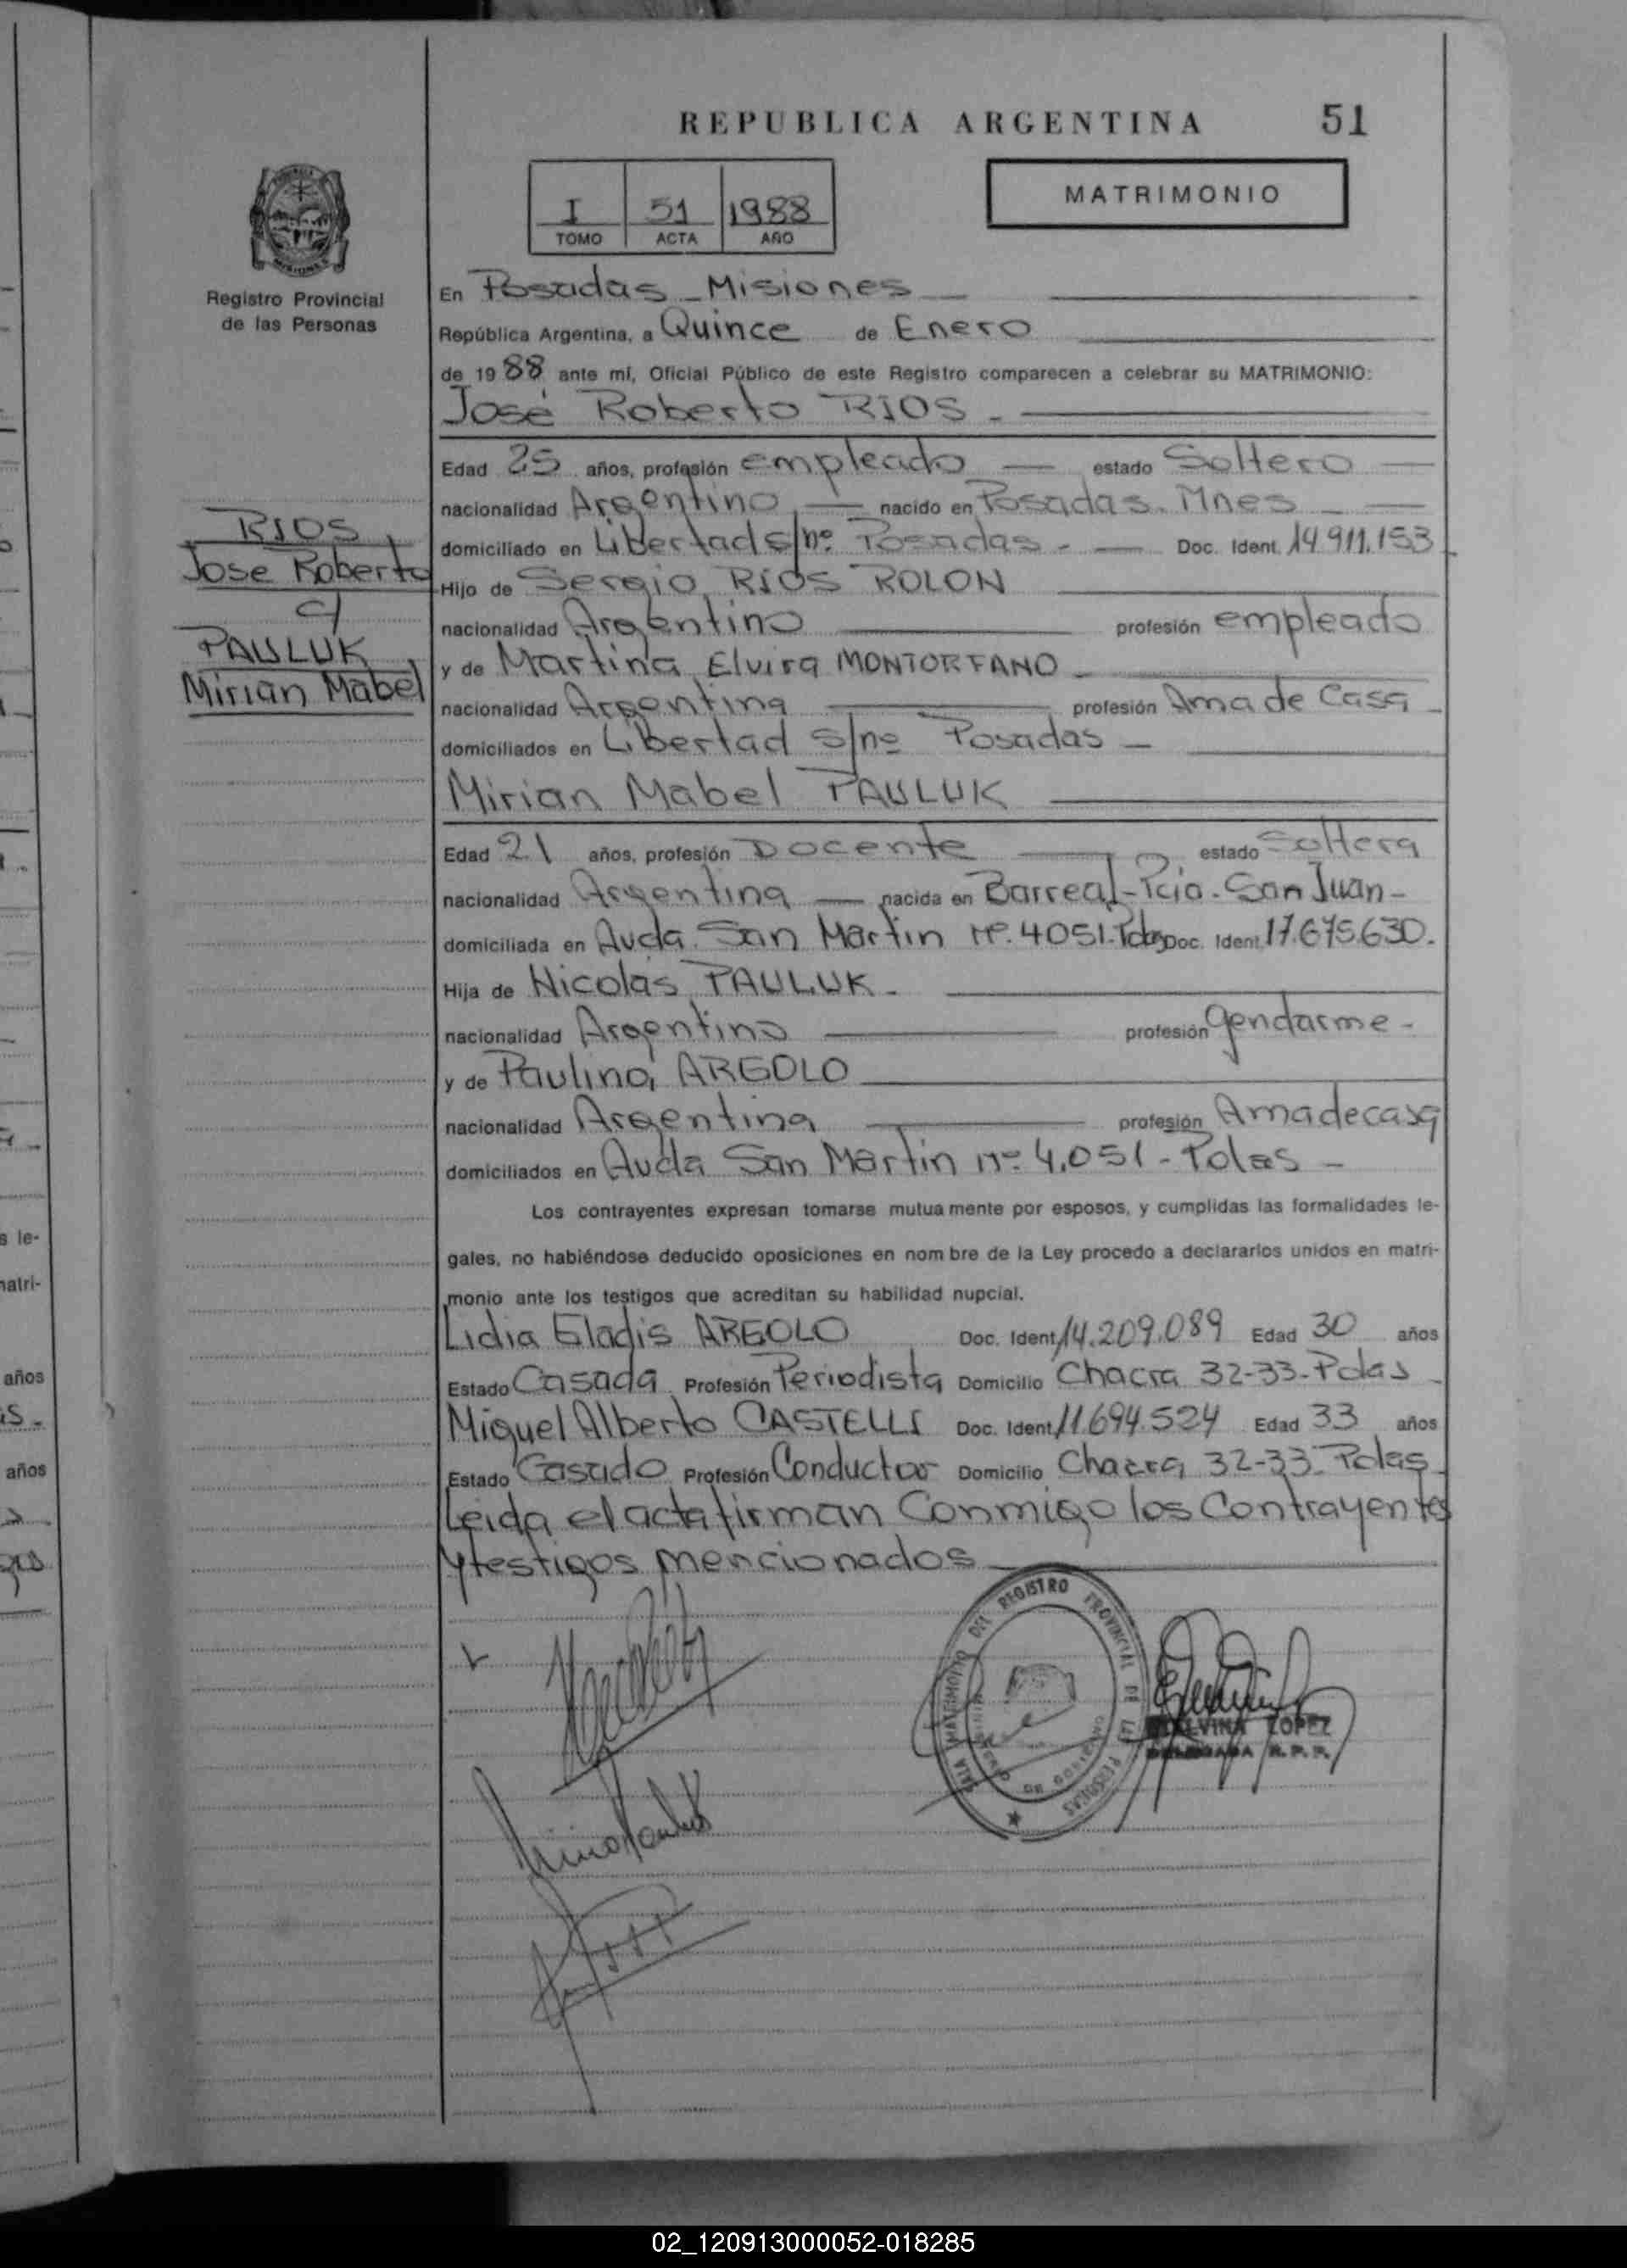 REPUBLICA ARGENTINA 51
MATRIMONIO
I 51 1988
TOMO ACTA AÑO
MISIONES
Registro Provincial
de las Personas
En Posadas - Misiones
República Argentina, a Quince de Enero
de 1988 ante mí, Oficial Público de este Registro comparecen a celebrar su MATRIMONIO:
José Roberto RIOS -
Edad 25 años, profesión empleado estado Soltero
nacionalidad Argentino nacido en Posadas. Mnes
domiciliado en Libertad s/nº Posadas - Doc. Ident. 14.911.153
Hijo de Sergio RIOS ROLON
nacionalidad Argentino profesión empleado
y de Martina Elvira MONTORFANO
nacionalidad Argentina profesión Ama de Casa
domiciliados en Libertad s/nº Posadas -
RIOS
Jose Roberto
c/
PAULUK
Mirian Mabel
Mirian Mabel PAULUK
Edad 21 años, profesión Docente estado Soltera
nacionalidad Argentina nacida en Barreal-Pcia. San Juan-
domiciliada en Avda. San Martin Nº. 4051. Pdas Doc. Ident. 17.675.630.
Hija de Nicolas PAULUK.
nacionalidad Argentino profesión gendarme -
y de Paulina ARGOLO
nacionalidad Argentina profesión Ama de casa
domiciliados en Avda San Martin nº 4.051 - Pdas -
Los contrayentes expresan tomarse mutua mente por esposos, y cumplidas las formalidades le-
gales, no habiéndose deducido oposiciones en nom bre de la Ley procedo a declararlos unidos en matri-
monio ante los testigos que acreditan su habilidad nupcial.
Lidia Gladis ARGOLO Doc. Ident. 14.209.089 Edad 30 años
Estado Casada Profesión Periodista Domicilio Chacra 32-33-Pdas
Miguel Alberto CASTELLI Doc. Ident. 11.694.524 Edad 33 años
Estado Casado Profesión Conductor Domicilio Chacra 32-33-Pdas
Leida el acta firman Conmigo los Contrayentes
y testigos mencionados
MATRIMONIO DEL REGISTRO PROVINCIAL DE LAS PERSONAS
LOPEZ
DELEGADA R.P.P.
s le-
matri-
años
años
02_120913000052-018285